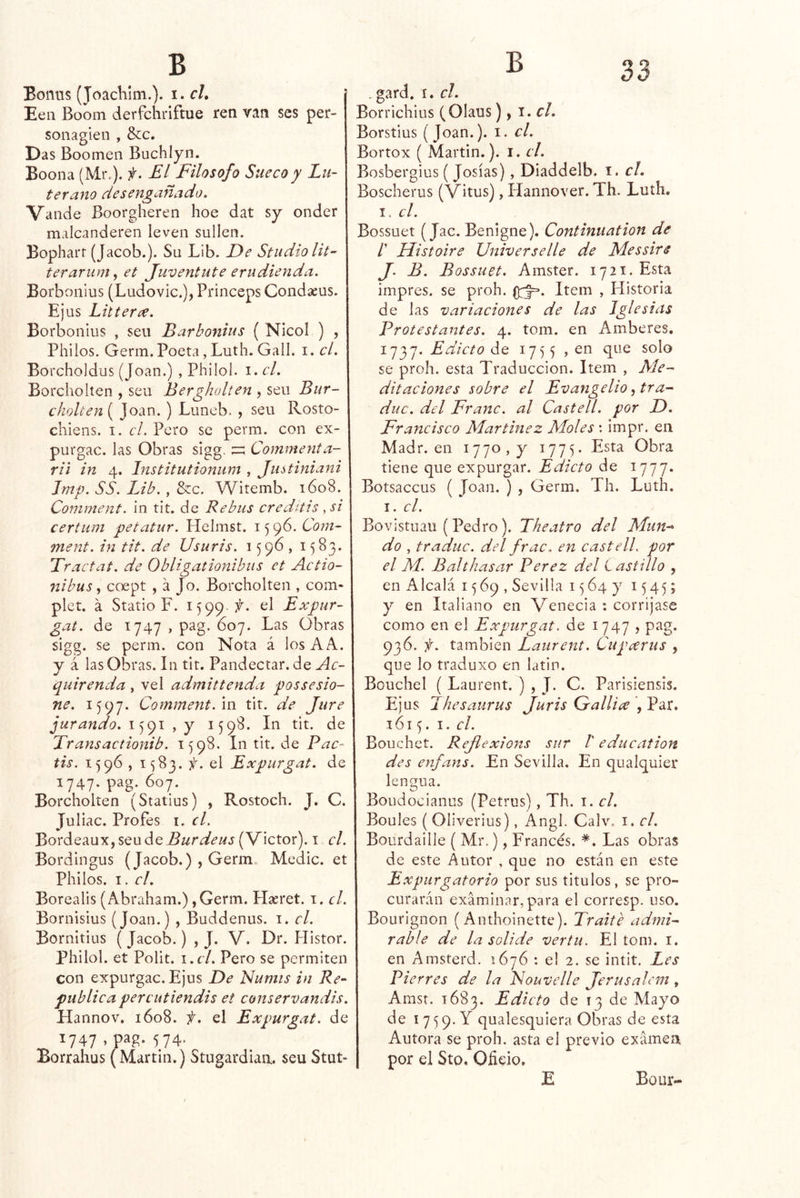 B
Bonus (Joachim.). 1. cl.
Een Boom derfchriftue ren van ses per-
sonagien , &c.
Das Boomen Buchlyn.
Boona (Mr.). ℣. El Filosofo Sueco y Lu-
terano desengañado.
Vande Boorgheren hoe dat sy onder
malcanderen leven sullen.
Bophart (Jacob.). Su Lib. De Studio lit-
terarum, et Juventute erudienda.
Borbonius (Ludovic.), Princeps Condæus.
Ejus Litteræ.
Borbonius , seu Barbonius ( Nicol ) ,
Philos. Germ. Poeta , Luth. Gall. 1. cl.
Borcholdus (Joan.) , Philol. 1. cl.
Borcholten , seu Bergholten , seu Bur-
cholten ( Joan. ) Luneb. , seu Rosto-
chiens. 1. cl. Pero se perm. con ex-
purgac. las Obras sigg. = Commenta-
rii in 4. Institutionum , Justiniani
Imp. SS. Lib. , &c. Witemb. 1608.
Comment. in tit. de Rebus creditis , si
certum petatur. Helmst. 1596. Com-
ment. in tit. de Usuris. 1596 , 1583.
Tractat. de Obligationibus et Actio-
nibus , cœpt , à Jo. Borcholten , com-
plet. à Statio F. 1599. ℣. el Expur-
gat. de 1747 , pag. 607. Las Obras
sigg. se perm. con Nota á los AA.
y á las Obras. In tit. Pandectar. de Ac-
quirenda , vel admittenda possesio-
ne. 1597. Comment. in tit. de Jure
jurando. 1591 , y 1598. In tit. de
Transactionib. 1598. In tit. de Pac-
tis. 1596 , 1583. ℣. el Expurgat. de
1747. pag. 607.
Borcholten (Statius) , Rostoch. J. C.
Juliac. Profes 1. cl.
Bordeaux, seu de Burdeus (Victor). 1 cl.
Bordingus (Jacob.) , Germ. Medic. et
Philos. 1. cl.
Borealis (Abraham.) , Germ. Hæret. 1. cl.
Bornisius (Joan.) , Buddenus. 1. cl.
Bornitius (Jacob.) , J. V. Dr. Histor.
Philol. et Polit. 1. cl. Pero se permiten
con expurgac. Ejus De Numis in Re-
publica percutiendis et conservandis.
Hannov. 1608. ℣. el Expurgat. de
1747 , pag. 574.
Borrahus (Martin.) Stugardian. seu Stut-
B
33
gard. 1. cl.
Borrichius (Olaus ) , 1. cl.
Borstius ( Joan.). 1. cl.
Bortox ( Martin.). 1. cl.
Bosbergius ( Josías) , Diaddelb. 1. cl.
Boscherus (Vitus) , Hannover. Th. Luth.
1. cl.
Bossuet (Jac. Benigne). Continuation de
l' Histoire Universelle de Messire
J. B. Bossuet. Amster. 1721. Esta
impres. se proh. ☞. Item , Historia
de las variaciones de las Iglesias
Protestantes. 4. tom. en Amberes.
1737. Edicto de 1755 , en que solo
se proh. esta Traduccion. Item , Me-
ditaciones sobre el Evangelio , tra-
duc. del Franc. al Castell. por D.
Francisco Martinez Moles : impr. en
Madr. en 1770 , y 1775. Esta Obra
tiene que expurgar. Edicto de 1777.
Botsaccus ( Joan. ) , Germ. Th. Luth.
1. cl.
Bovistuau (Pedro ). Theatro del Mun-
do , traduc. del frac. en castell. por
el M. Balthasar Perez del Castillo ,
en Alcalá 1569 , Sevilla 1564 y 1545;
y en Italiano en Venecia : corrijase
como en el Expurgat. de 1747 , pag.
936. ℣. tambien Laurent. Cupærus ,
que lo traduxo en latin.
Bouchel ( Laurent. ) , J. C. Parisiensis.
Ejus Thesaurus Juris Galliæ , Par.
1615. 1. cl.
Bouchet. Reflexions sur l' education
des enfans. En Sevilla. En qualquier
lengua.
Boudocianus (Petrus) , Th. 1. cl.
Boules ( Oliverius) , Angl. Calv. 1. cl.
Bourdaille ( Mr. ) , Francés. *. Las obras
de este Autor , que no están en este
Expurgatorio por sus titulos , se pro-
curarán exâminar, para el corresp. uso.
Bourignon ( Anthoinette). Traitè admi-
rable de la solide vertu. El tom. 1.
en Amsterd. 1676 : el 2. se intit. Les
Pierres de la Nouvelle Jerusalem ,
Amst. 1683. Edicto de 13 de Mayo
de 1759. Y qualesquiera Obras de esta
Autora se proh. asta el previo exâmen
por el Sto. Oficio.
E Bour-